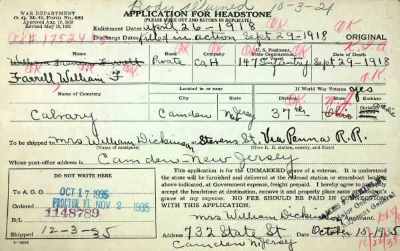 Body returned 10-3-21
WAR DEPARTMENT
O. Q. M. G. Form No. 623
APPLICATION FOR HEADSTONE
(PLEASE MAKE OUT AND RETURN IN DUPLICATE)
Enlistment Dates April 26-1918
Discharge Dates Killed in action Sept 29-1918
ORIGINAL
OK
Farrell William F Private Co H 147 Infantry Sept 29-1918
Name of Cemetery
Located in or near
If World War Veteran yes
Division
Calvary Camden New Jersey 37th Ohio
To be shipped to Mrs William Dickinson Stevens St. Via Penna R.R.
Whose post-office address is Camden New Jersey
DO NOT WRITE HERE
This application is for the UNMARKED grave of a veteran. It is understood
the stone will be furnished and delivered at the railroad station or steamboat landing
above indicated, at Government expense, freight prepaid. I hereby agree to promptly
accept the headstone at destination, remove it and properly place same at decedent's
grave at my expense. NO FEE SHOULD BE PAID IN CONNECTION
WITH THIS APPLICATION.
To A G O OCT 17 1935
PROCTOR VT. NOV 2 1935
Ordered
1148789
Shipped 12-3-35
Mrs William Dickinson
Address 732 State St Date October 15-1935
Camden N Jersey